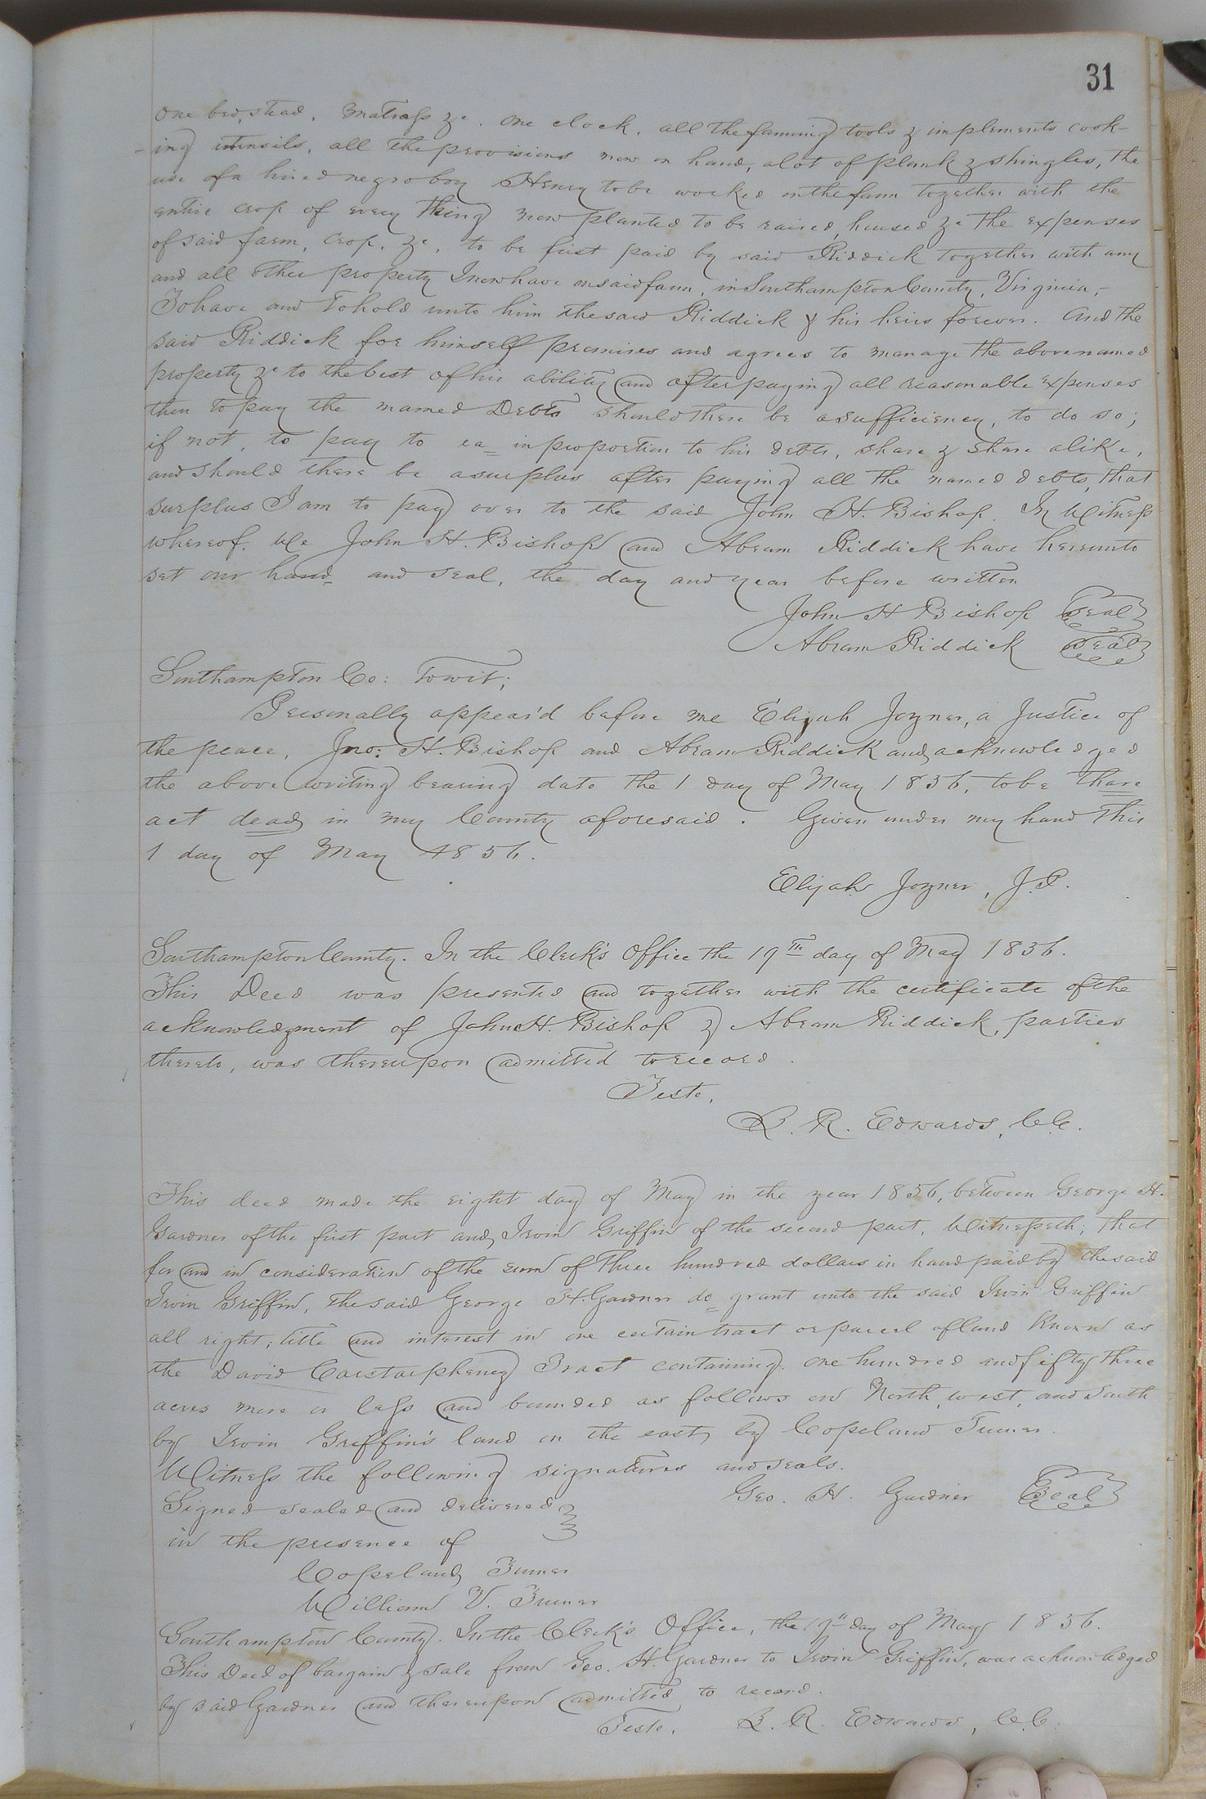 31
One bedstead, Matrass &c. One clock, all the farming tools & implements cook-
-ing utensils, all the provisions now on hand, a lot of plank & shingles, the
use of a hired negro boy Henry to be worked on the farm together with the
entire crop of every thing now planted to be raised, housed &c the expenses
of said farm, crop, &c, to be first paid by said Riddick together with any
and all other property I now have on said farm, in Southampton County, Virginia,-
To have and to hold unto him the said Riddick & his heirs forever. And the
said Riddick for himself promises and agrees to manage the above named
property &c to the best of his ability and after paying all reasonable expenses
then to pay the named Debts should there be a sufficiency, to do so;
if not, to pay to ea= in proportion to his debts, share & share alike,
and should there be a surplus after paying all the named debts, that
surplus I am to pay over to the said John H. Bishop. In Witness
whereof. We John H. Bishop and Abram Riddick have hereunto
set our hand= and seal, the day and year before written
John H Bishop Seal
Abram Riddick Seal
Southampton Co: Towit;
Personally appear'd before me Elijah Joyner, a Justice of
the peace, Jno: H. Bishop and Abram Riddick and acknowledged
the above writing bearing date the 1 day of May 1856, to be thare
act dead in my County aforesaid. Given under my hand this
1 day of May 1856.
Elijah Joyner, J.P.
Southampton County. In the Clerk's Office the 19th day of May 1856.
This Deed was presented and together with the certificate of the
acknowledgment of John H. Bishop & Abram Riddick, parties
thereto, was thereupon admitted to record.
Teste,
L. R. Edwards, C.C.
This deed made the eight day of May in the year 1856, between George H.
Gardner of the first part and Irvin Griffin of the second part, Witnesseth; that
for and in consideration of the sum of three hundred dollars in hand paid by the said
Irvin Griffin, the said George H. Gardner do= grant unto the said Irvin Griffin
all right, title and interest in one certain tract or parcel of land known as
the David Carstarpheney Tract containing one hundred and fifty three
acres more or less and bounded as follows on North, west, and South
by Irvin Griffin's land on the east, by Copeland Turner.
Witness the following signatures and seals.
Geo. H. Gardner Seal
Signed sealed and delivered
in the presence of
Copeland Turner
William V. Turner
Southampton County. In the Clerk's Office, the 19th day of May 1856.
This Deed of bargain & sale from Geo. H. Gardner to Irvin Griffin, was acknowledged
by said Gardner and thereupon admitted to record.
Teste, L. R. Edwards, C.C.